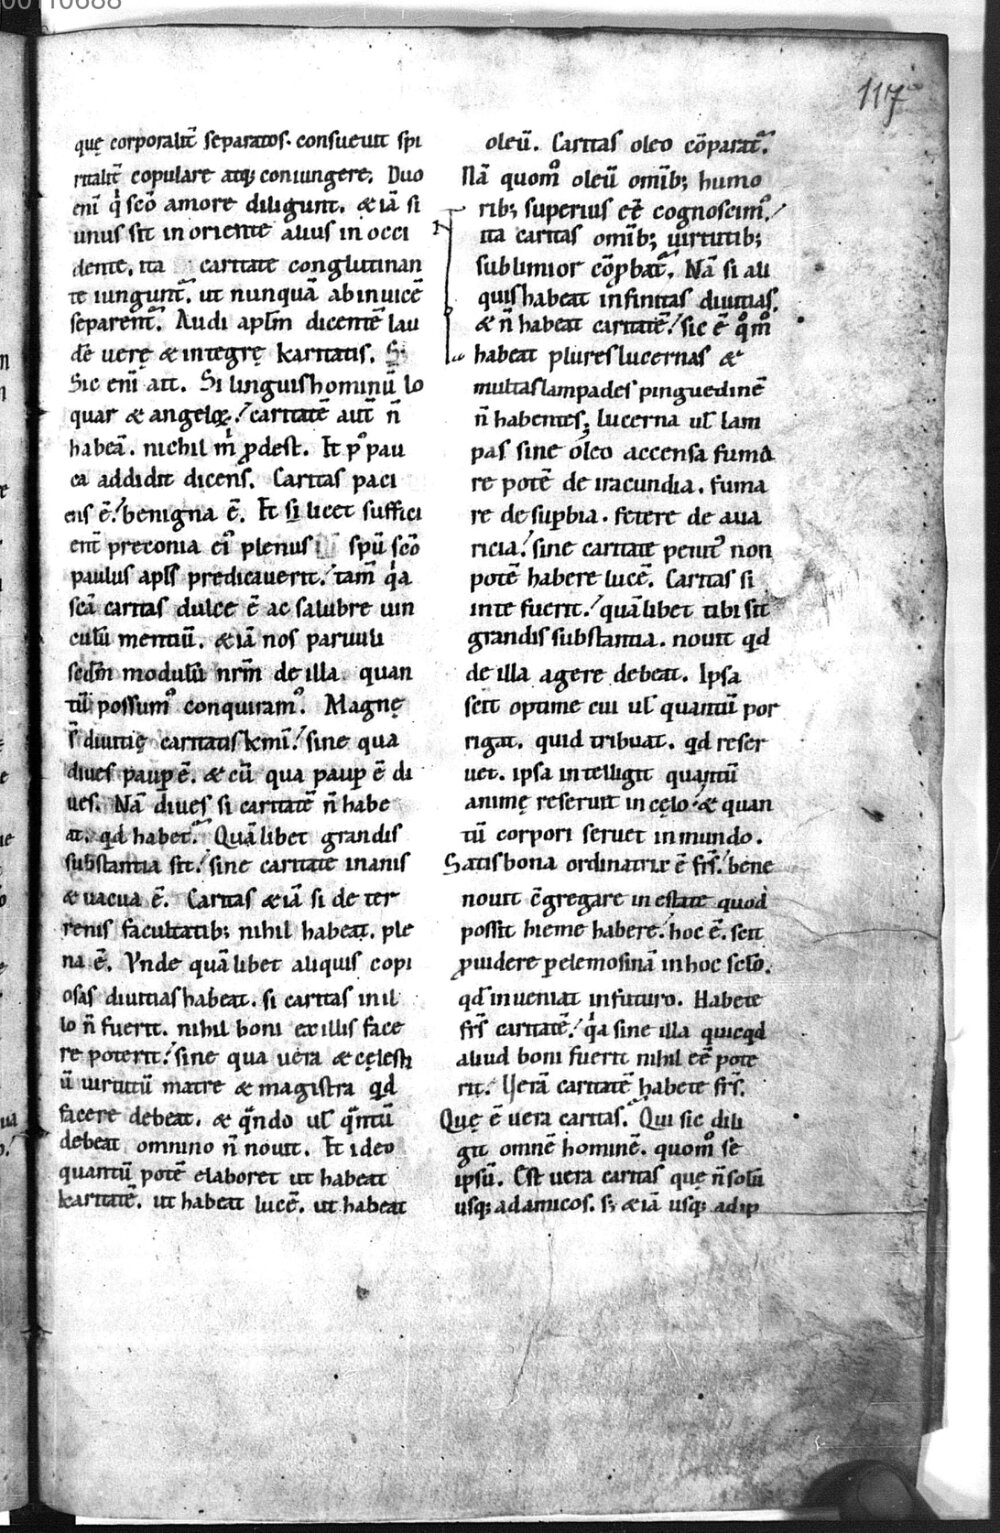 00110688
117
quę corporalit̄ separatos. consueuit spi
ritalit̄ copulare atq; coniungere. Duo
eni q̇ scō amore diligunt. & iā si
unus sit in oriente alius in occi
dente. ita caritate conglutinan
te iungunt̄. ut nunquā abinuicē
separent̄. Audi aplm̄ dicentē lau
dē uerę & integrę karitatis. Si
Sic eni ait. Si linguis hominū lo
quar & angeloꝝ. caritatē aut̄ n̄
habeā. nichil ṁ ꝓdest. Et p᷒ pau
ca addidit dicens. Caritas paci
ens ē. benigna ē. Et si licet suffici
ent̄ preconia ei᷒ plenus spū scō
paulus apls̄ predicauerit. tam̄ q̇a
scā caritas dulce ē ac salubre uin
culū mentiū. & iā nos paruuli
scdm̄ modulū nr̄m de illa quan
tū possum᷒ conquiram᷒. Magnę
s̄ diuitię caritatis kmi. sine qua
diues paup ē. & cū qua paup ē di
ues. Nā diues si caritatē n̄ habe
at. qd habet. Quā libet grandis
substantia sit. sine caritate inanis
& uacua ē. Caritas & iā si de ter
renis facultatib; nihil habeat. ple
na ē. Vnde quā libet aliquis copi
osas diuitias habeat. si caritas in il
lo n̄ fuerit. nihil boni ex illis face
re poterit. sine qua uera & cęlesti
ū uirtutū matre & magistra qd
facere debeat. & q̄ndo ul̄ q̄ntū
debeat omnino n̄ nouit. Et ideo
quantū potē elaboret ut habeat
karitatē. ut habeat lucē. ut habeat
oleū. Caritas oleo cōparat̄.
Nā quom᷒ oleū omīb; humo
rib; superius eē cognoscim᷒.
ita caritas omīb; uirtutib;
sublimior cōpbat̄. Nā si ali
quis habeat infinitas diuitias.
& n̄ habeat caritatē. sic ē q̊m᷒
habeat plures lucernas &
multas lampades pinguedinē
n̄ habentes. lucerna ul̄ lam
pas sine oleo accensa fuma
re potē de iracundia. fuma
re de supbia. fetere de aua
ricia. sine caritate penit᷒ non
potē habere lucē. Caritas si
in te fuerit. quā libet tibi sit
grandis substantia. nouit qd
de illa agere debeat. Ipsa
scit optime cui ul̄ quantū por
rigat. quid tribuat. qd reser
uet. ipsa intelligit quantū
animę reseruit in cęlo. & quan
tū corpori seruet in mundo.
Satis bona ordinatrix ē frs̄. bene
nouit c̄gregare in estate quod
possit hieme habere. hoc ē. scit
ꝓuidere p elemosinā in hoc sclo.
qd inueniat in futuro. Habete
frs̄ caritatē. q̇a sine illa quicqd
aliud boni fuerit nihil eē pote
rit. Verā caritatē habete frs̄.
Quę ē uera caritas. Qui sic dili
git omnē hominē. quom᷒ se
ipsū. Est uera caritas que n̄ solū
usq; ad amicos. s; & iā usq; ad ip